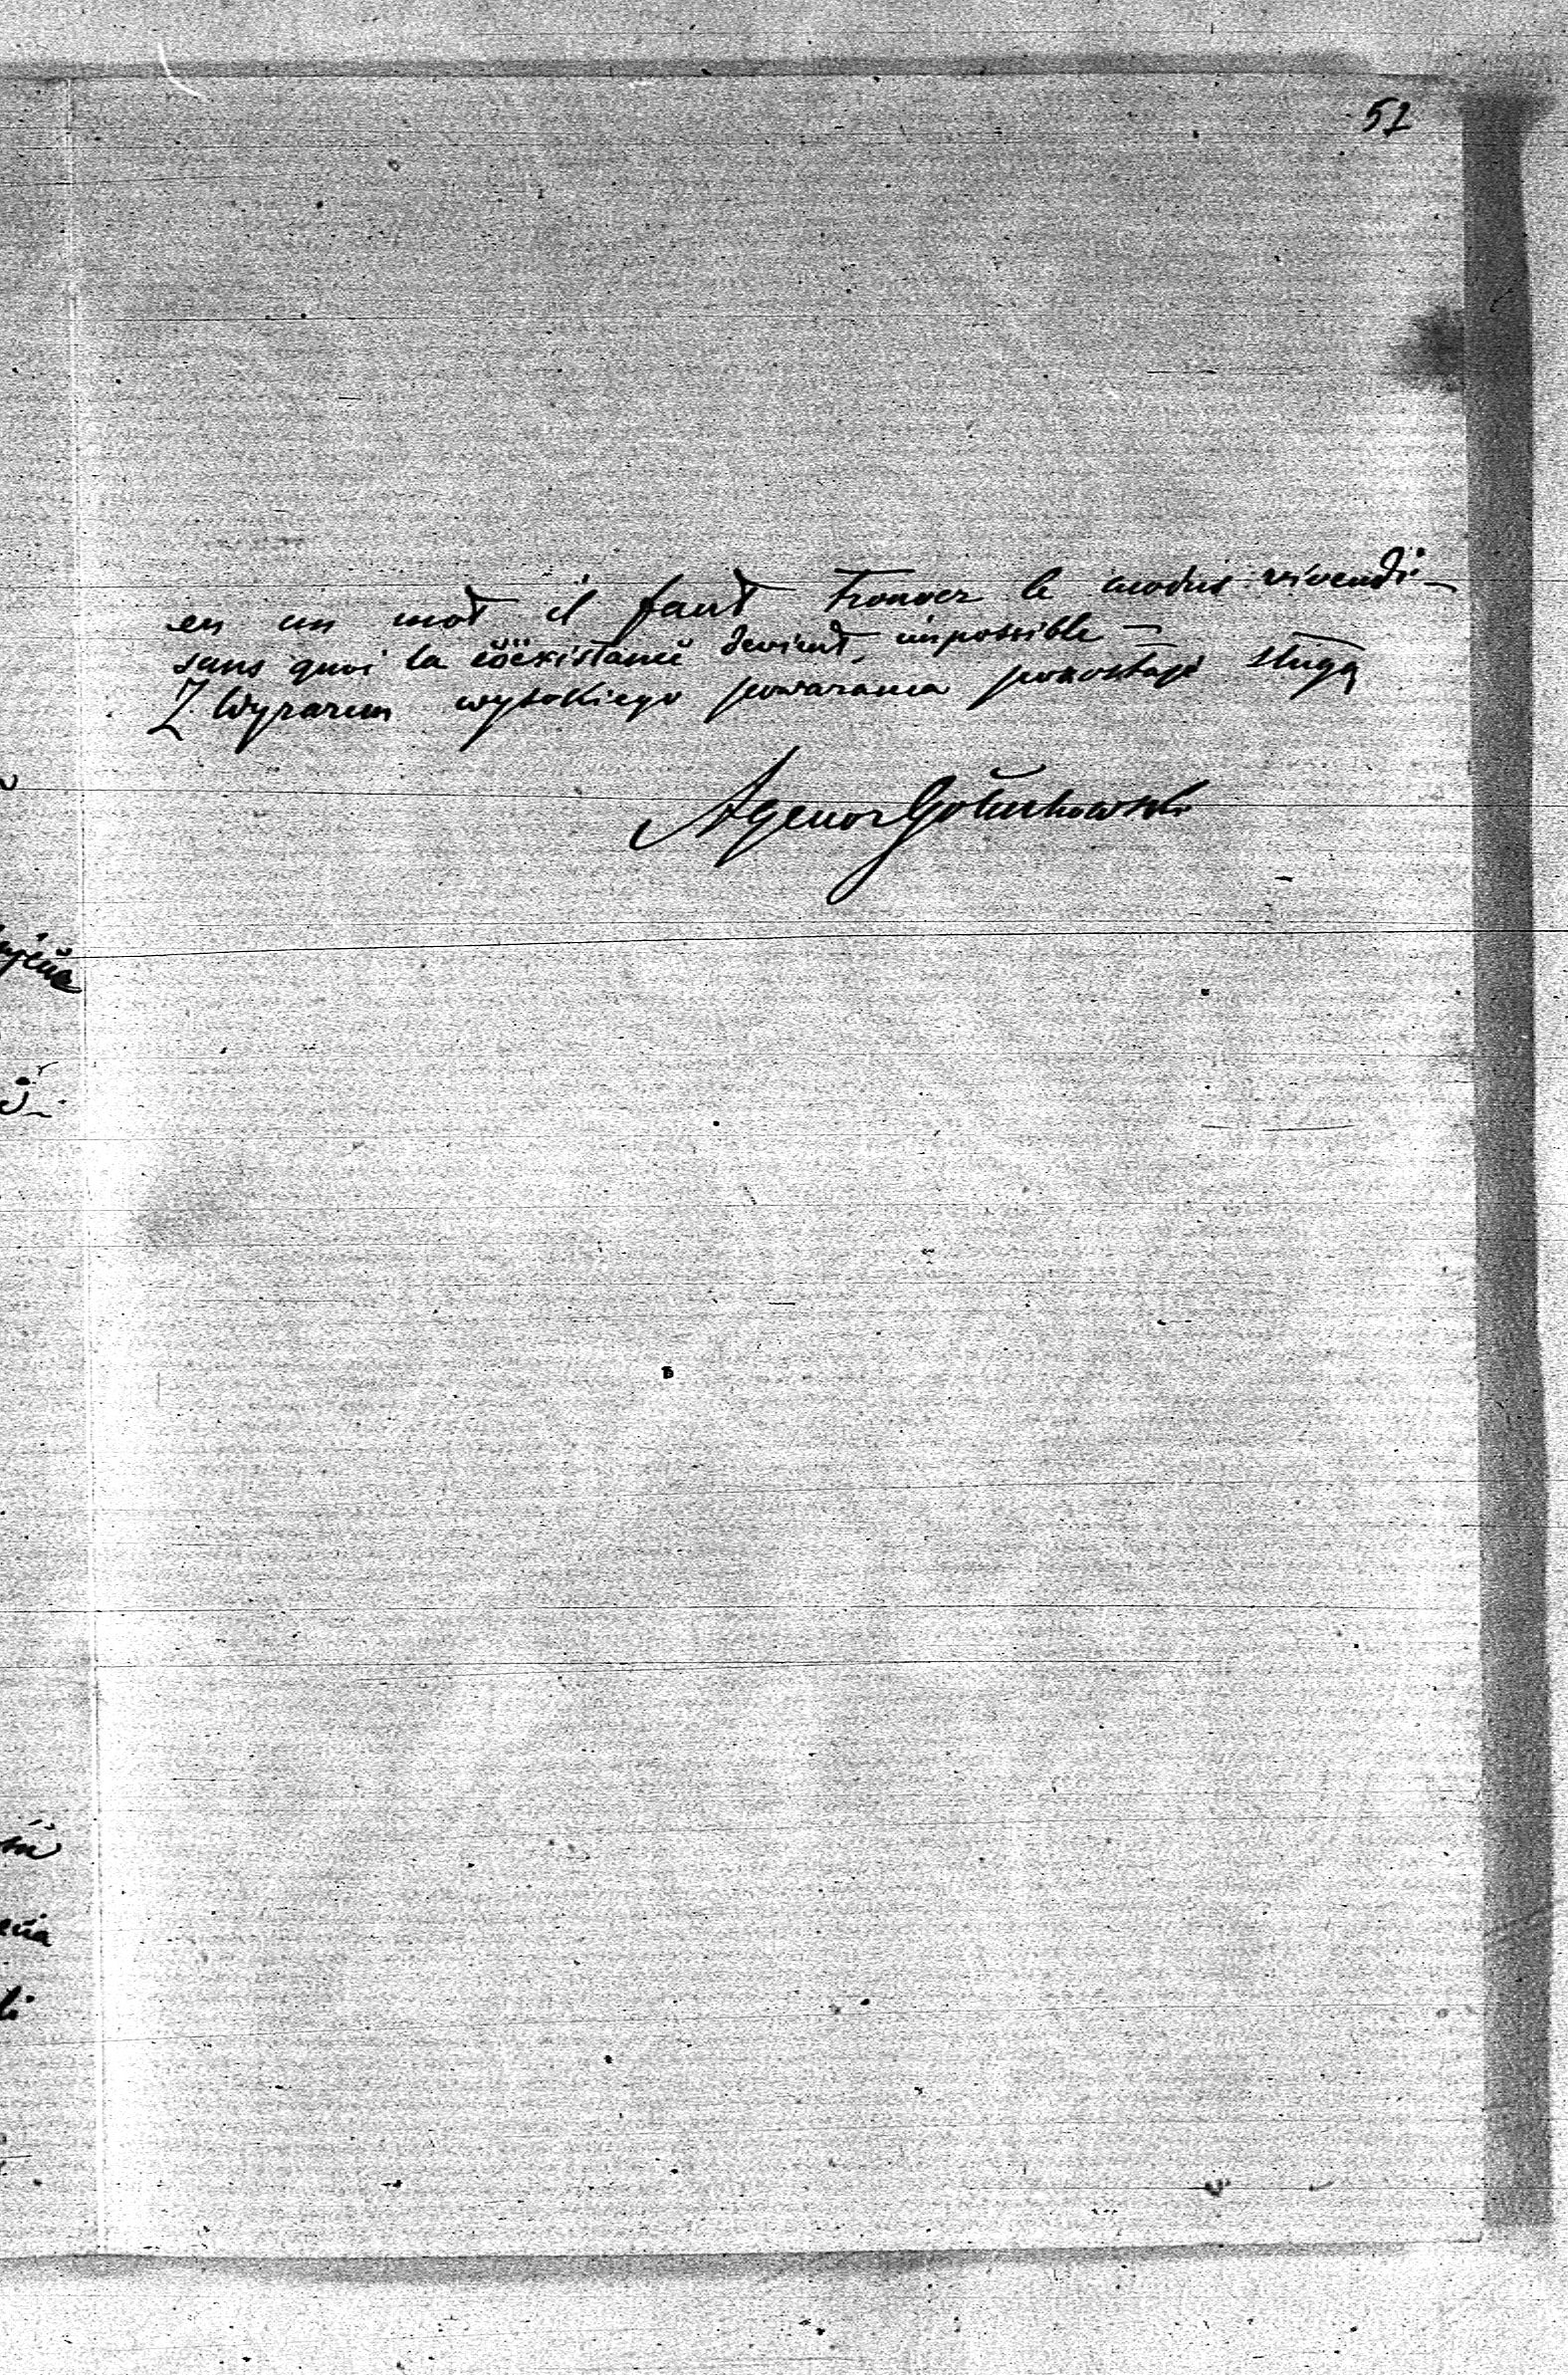 57
en un mot il faut trouver le modus vivendi —
sans quoi la coëxistance devient impossible —
Z wyrazem wysokiego poważania pozostaję sługą
Agenor Gołuchowski